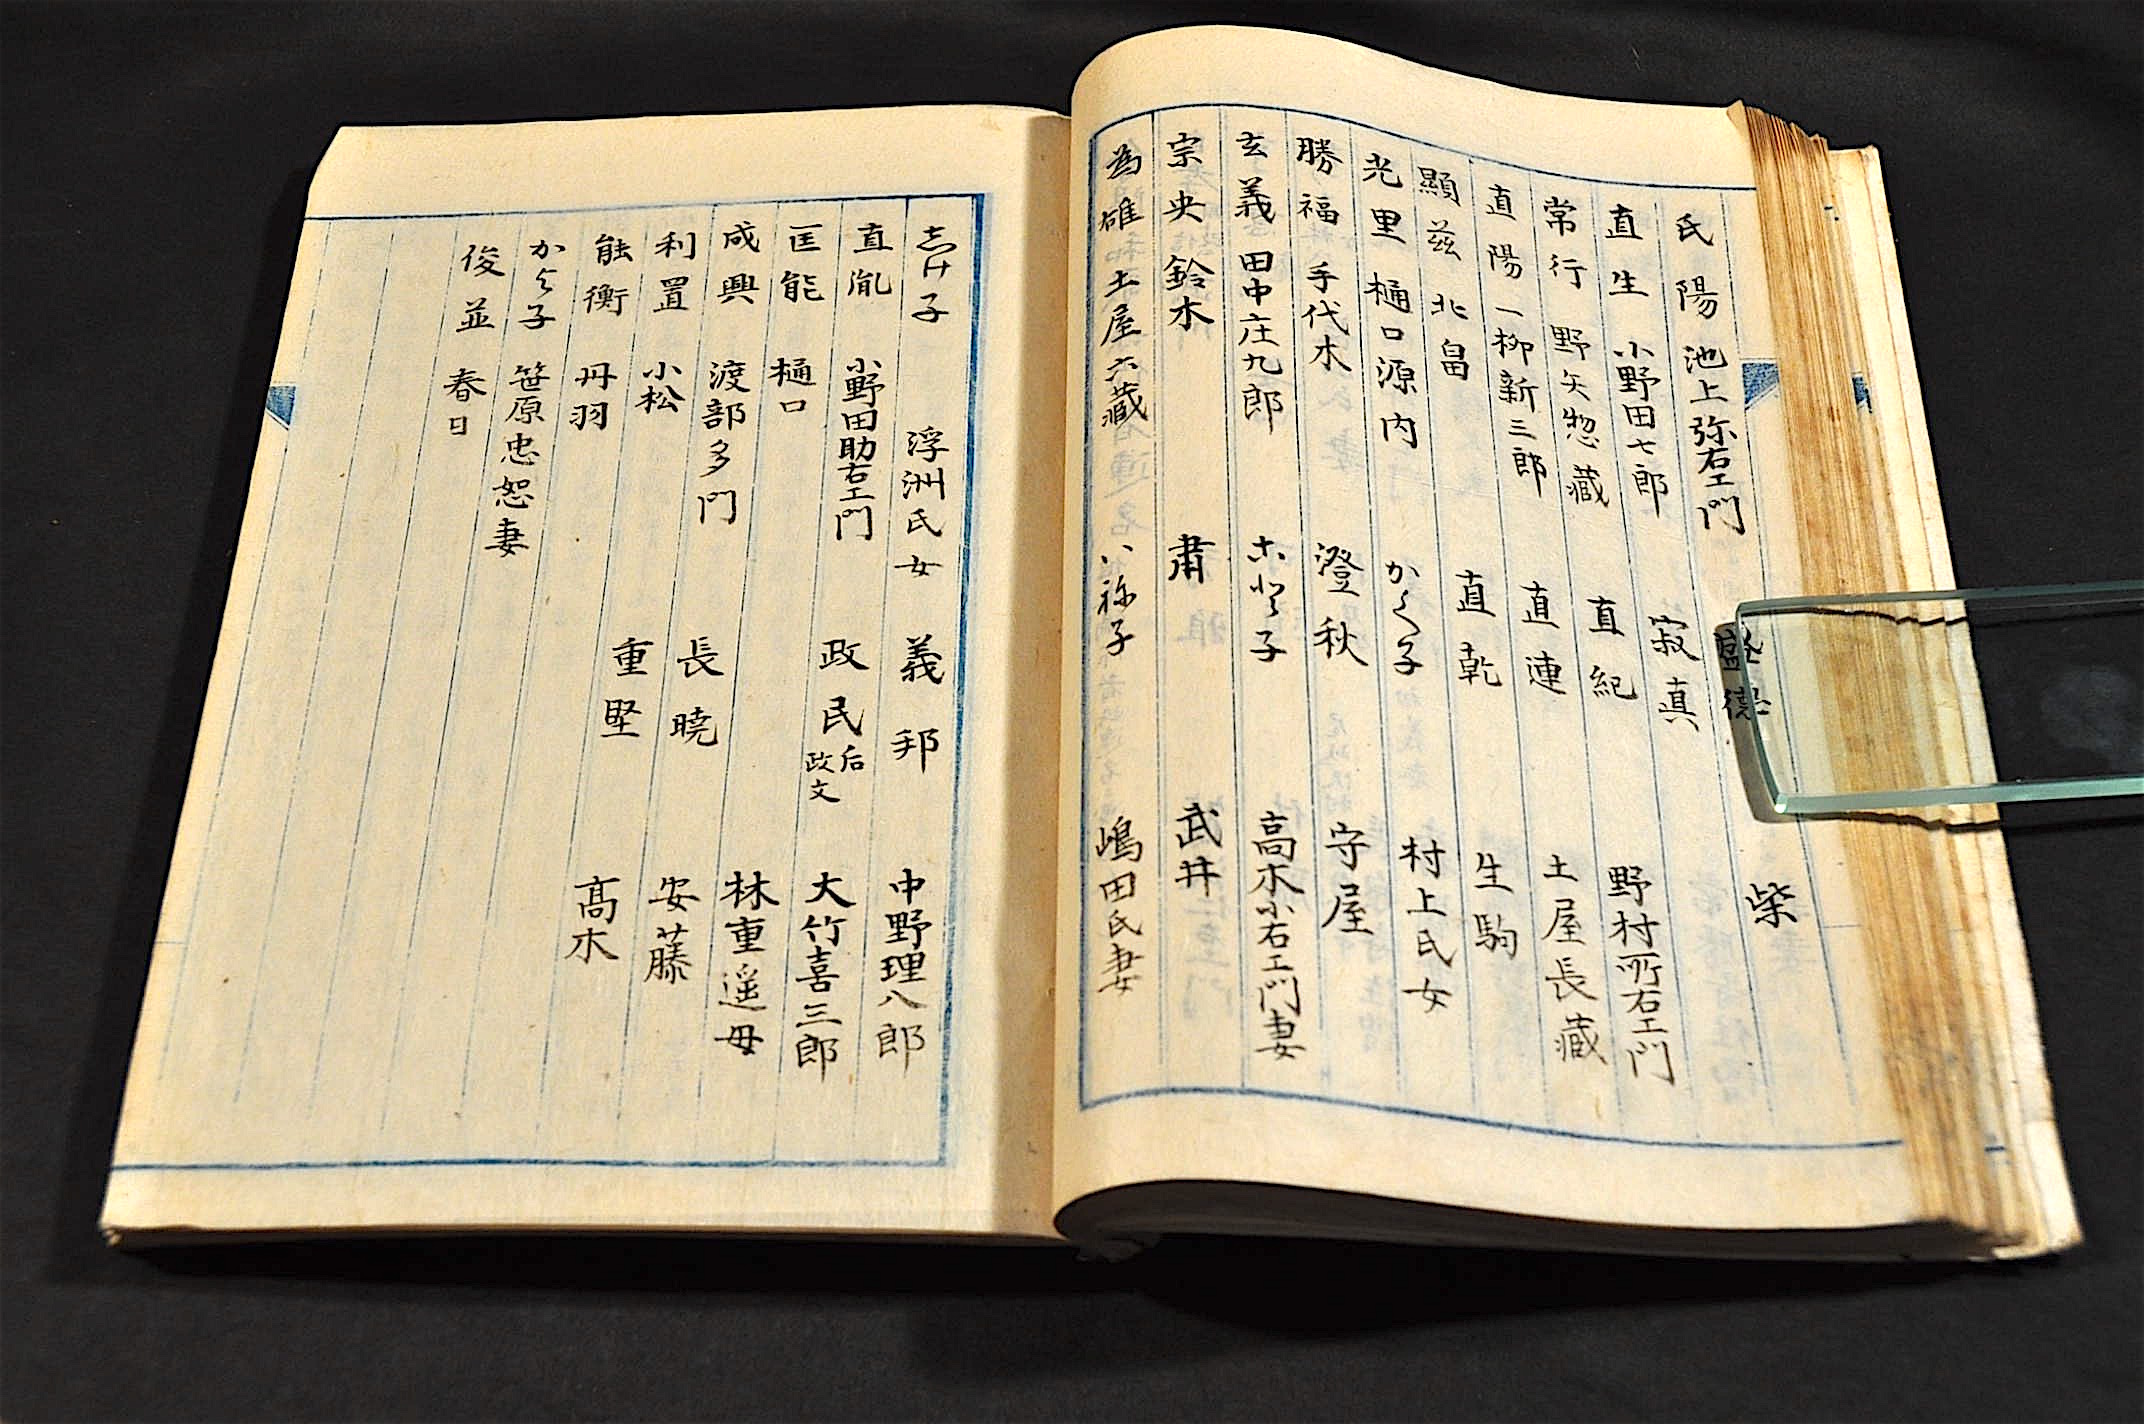 氏陽 池上弥右エ門 盛徳 柴
直生 小野田七郎 寂真
常行 野矢惣藏 直紀 野村所右エ門
直陽 一柳新三郎 直連 土屋長藏
顯茲 北畠 直乾 生駒
光里 樋口源内 かく子 村上氏女
勝福 手代木 澄秋 守屋
玄義 田中庄九郎 こと子 高木小右エ門妻
宗央 鈴木 肅 武井
為雄 土屋六藏 八祢子 嶋田氏妻
志け子 浮洲氏女 義邦 中野理八郎
直胤 小野田助右エ門 政民 后政文 大竹喜三郎
匡能 樋口
成興 渡部多門 林重遥母
利置 小松 長暁 安藤
能衡 丹羽 重堅 髙木
かよ子 笹原忠恕妻
俊並 春日